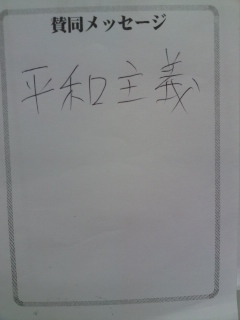 賛同メッセージ
平和主義